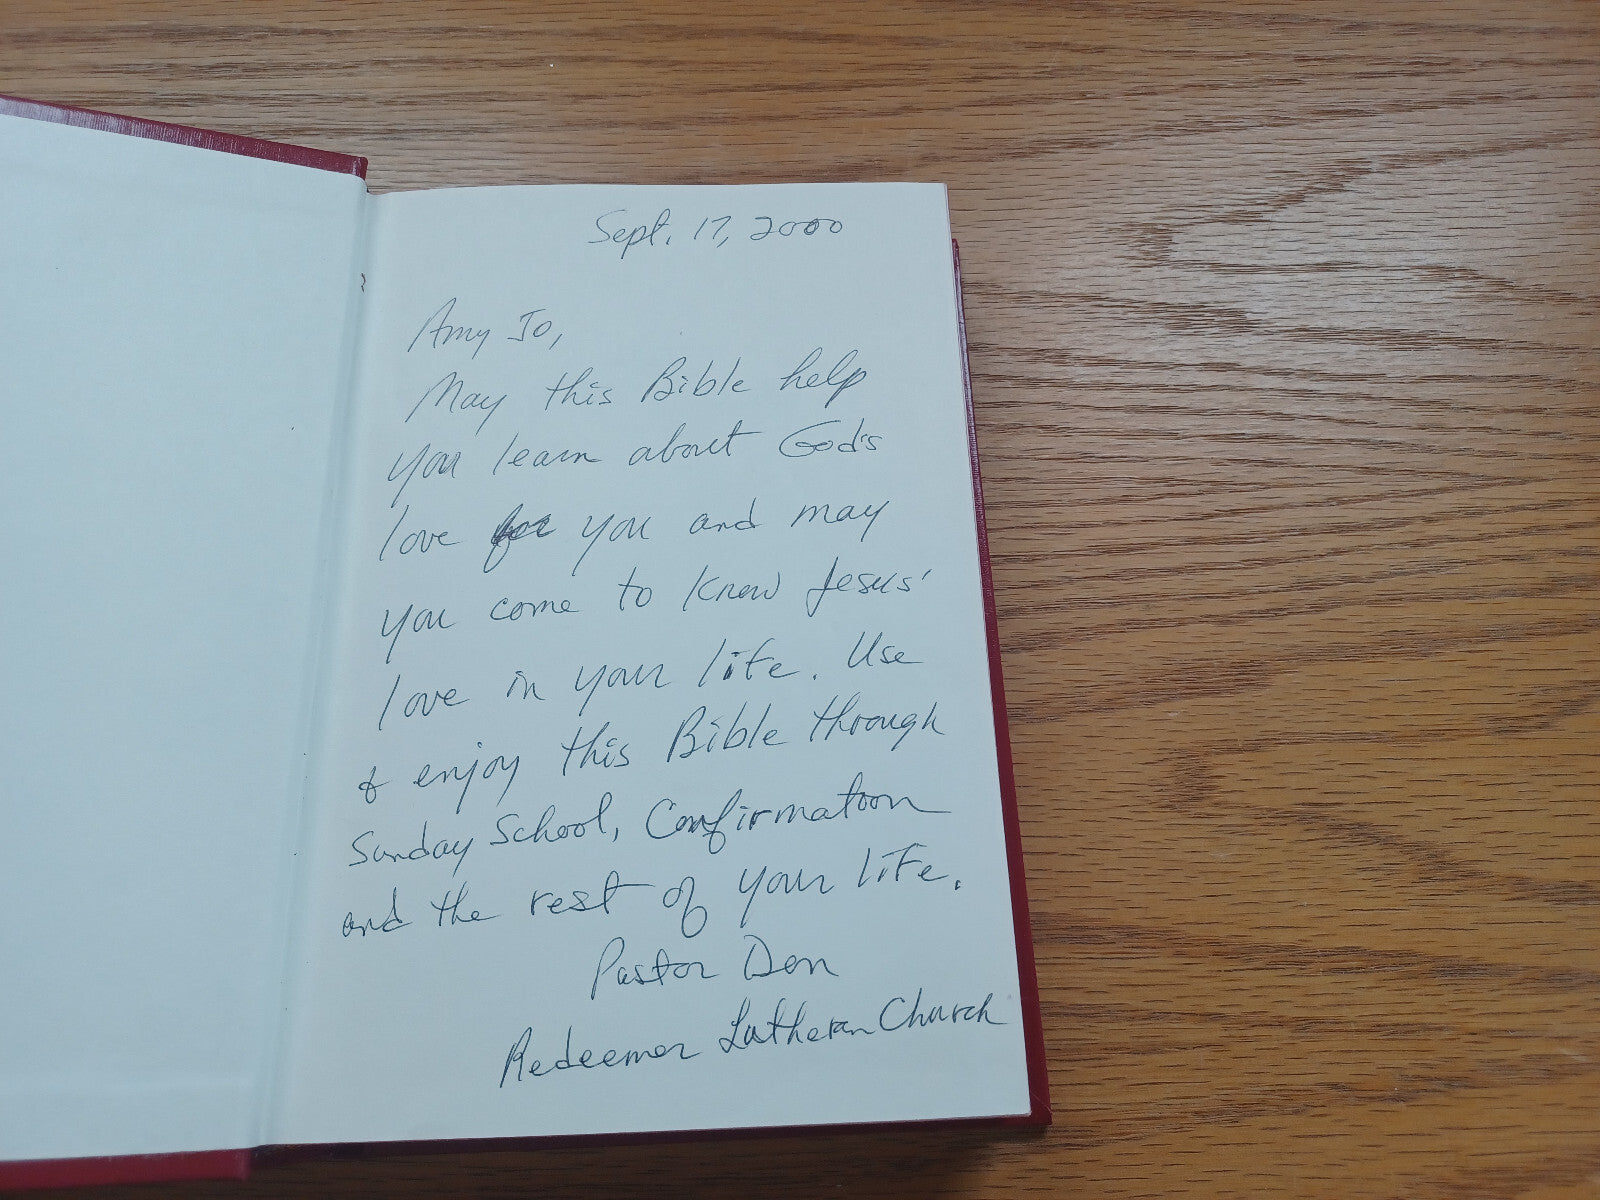 Sept. 17, 2000
Amy Jo,
May this Bible help
you learn about God's
love for you and may
you come to know Jesus'
love in your life. Use
& enjoy this Bible through
Sunday School, Confirmation
and the rest of your life.
Pastor Den
Redeemer Lutheran Church